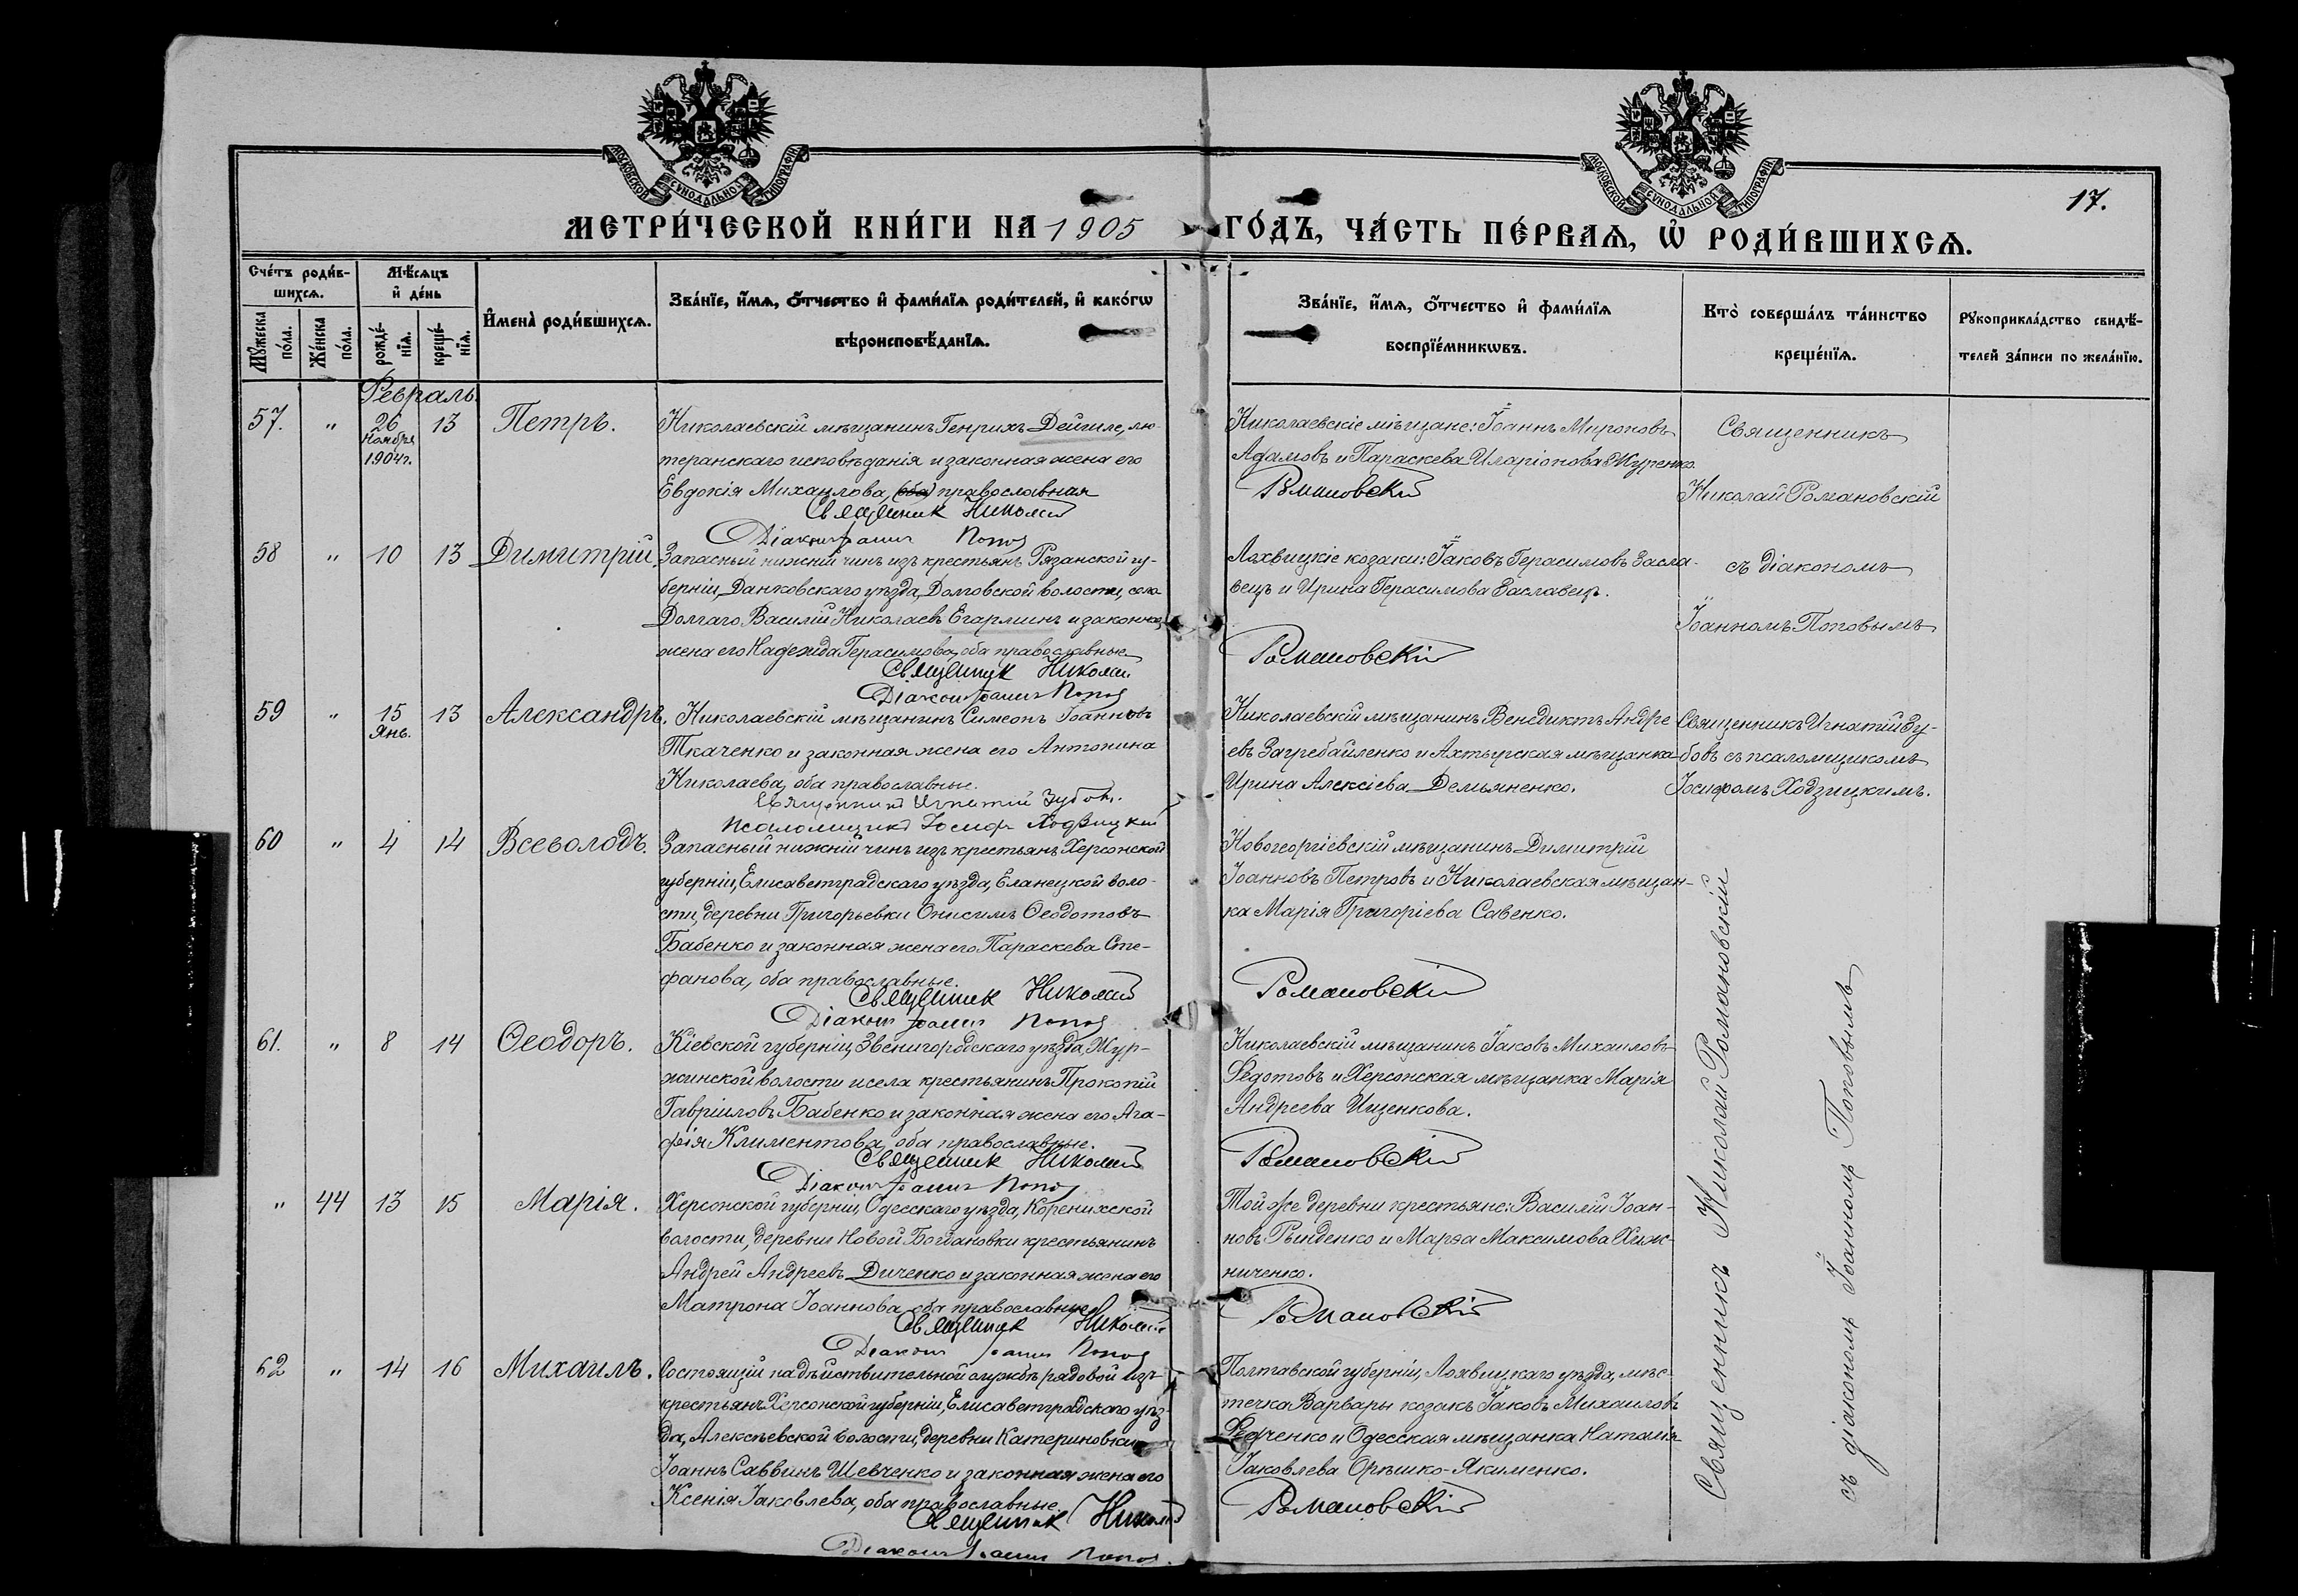 МОСКОВСКОЙ СѴНОДАЛЬНОЙ ТИПОГРАФІИ
МОСКОВСКОЙ СѴНОДАЛЬНОЙ ТИПОГРАФІИ
17.
МЕТРИ́ЧЕСКОЙ КНИ́ГИ НА 1905 ГО́ДЪ, ЧА́СТЬ ПЕ́РВАѦ, Ѡ҆ РОДИ́ВШИХСѦ.
Сче́тъ роди́в-
шихсѧ.
Мꙋ́жеска по́ла.
Же́нска по́ла.
Мѣ́сѧцъ
и҆ де́нь
рожде́-нїѧ.
креще́-нїѧ.
И҆мена̀ роди́вшихсѧ.
Зва́нїе, и҆́мѧ, ѻ҆́тчество и҆ фами́лїѧ роди́телей, и҆ како́гѡ
вѣроисповѣ́данїѧ.
Зва́нїе, и҆́мѧ, ѻ҆́тчество и҆ фами́лїѧ
воспрїе́мникѡвъ.
Кто̀ соверша́лъ та́инство
креще́нїѧ.
Рꙋкоприкла́дство свидѣ́-
телей за́писи по жела́нїю.
Февраль.
57. " 26 Ноября 1904 г. 13 Петръ.
Николаевскій мѣщанинъ Генрихъ Дейгиле, лю-
теранскаго исповѣданія и законная жена его
Евдокія Михаилова, (оба) православная
Священникъ Николай Романовскій
Діаконъ Іоаннъ Поповъ
Николаевскіе мѣщане: Іоаннъ Мироновъ
Адамовъ и Параскева Иларіонова Журенко.
Священникъ
Николай Романовскій
съ діакономъ
Іоанномъ Поповымъ
58 " 10 13 Димитрій.
Запасный нижній чинъ изъ крестьянъ Рязанской гу-
берніи, Данковскаго уѣзда, Долговской волости, села
Долгаго Василій Николаевъ Егарминъ и законная
жена его Надежда Герасимова, оба православные
Священникъ Николай Романовскій
Діаконъ Іоаннъ Поповъ
Лохвицкіе козаки: Іаковъ Герасимовъ Засла-
вецъ и Ирина Герасимова Заславецъ.
59 " 15 Янв. 13 Александръ.
Николаевскій мѣщанинъ Симеонъ Іоанновъ
Ткаченко и законная жена его Антонина
Николаева, оба православные.
Священникъ Игнатій Зубовъ.
Псаломщикъ Іосифъ Ходзицкій
Николаевскій мѣщанинъ Венедиктъ Андре
евъ Загребайленко и Ахтырская мѣщанка
Ирина Алексіева Демьяненко.
Священникъ Игнатій Зу-
бовъ съ псаломщикомъ
Іосифомъ Ходзицкимъ.
60 " 4 14 Всеволодъ.
Запасный нижній чинъ изъ крестьянъ Херсонской
губерніи, Елисаветградскаго уѣзда, Еланецкой воло-
сти, деревни Григорьевки Онисимъ Ѳеодотовъ
Бабенко и законная жена его Параскева Сте-
фанова, оба православные.
Священникъ Николай Романовскій
Діаконъ Іоаннъ Поповъ
Новогеоргіевскій мѣщанинъ Димитрій
Іоанновъ Петровъ и Николаевская мѣщан-
ка Марія Григоріева Савенко.
Священникъ Николай Романовскій
съ діакономъ Іоанномъ Поповымъ
61. " 8 14 Ѳеодоръ.
Кіевской губерніи, Звенигородскаго уѣзда, Жур-
жинской волости и села крестьянинъ Прокопій
Гавріиловъ Бабенко и законная жена его Ага-
фія Климентова, оба православные.
Священникъ Николай Романовскій
Діаконъ Іоаннъ Поповъ
Николаевскій мѣщанинъ Іаковъ Михаиловъ
Ѳедотовъ и Херсонская мѣщанка Марія
Андреева Ищенкова.
" 44 13 15 Марія.
Херсонской губерніи, Одесскаго уѣзда, Коренихской
волости, деревни Новой Богдановки крестьянинъ
Андрей Андреевъ Диченко и законная жена его
Матрона Іоаннова, оба православные
Священникъ Николай Романовскій
Діаконъ Іоаннъ Поповъ
Той же деревни крестьяне: Василій Іоан-
новъ Рынденко и Марѳа Максимова Хиж-
ниченко.
62 " 14 16 Михаилъ.
Состоящій на дѣйствительной службѣ рядовой изъ
крестьянъ Херсонской губерніи, Елисаветградскаго уѣз-
да, Алексѣевской волости, деревни Катериновки
Іоаннъ Саввинъ Шевченко и законная жена его
Ксенія Іаковлева, оба православные.
Священникъ Николай Романовскій
Діаконъ Іоаннъ Поповъ.
Полтавской губерніи, Лохвицкаго уѣзда, мѣс-
течка Варвары козакъ Іаковъ Михаиловъ
Ѳедченко и Одесская мѣщанка Наталія
Іаковлева Орѣшко-Якименко.